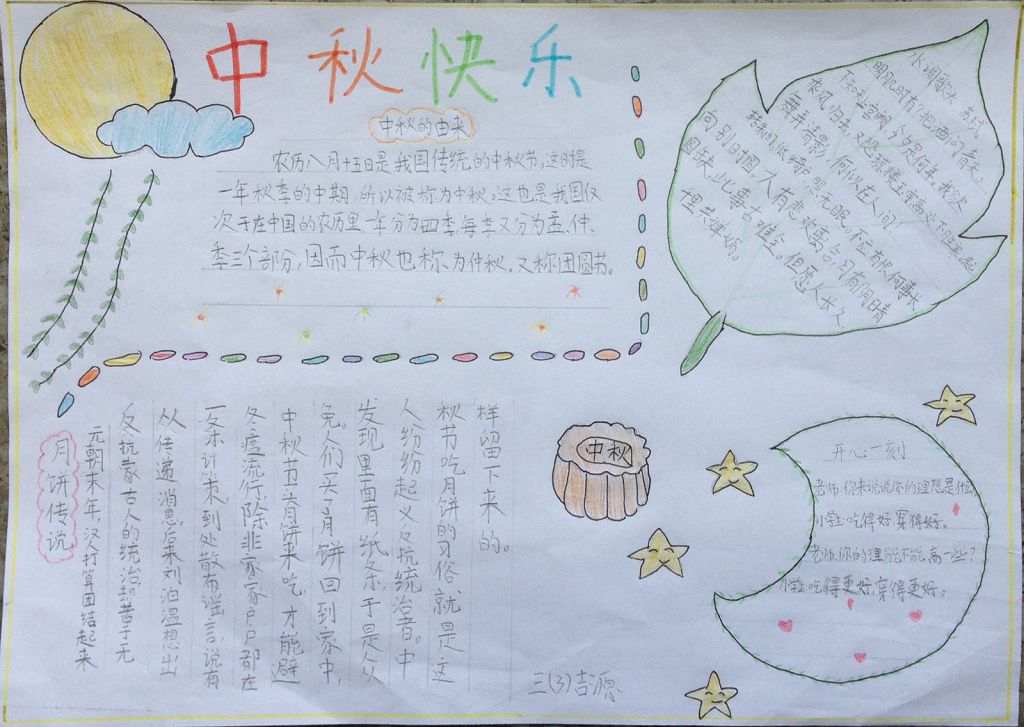 中秋快乐
中秋的由来
农历八月十五日是我国传统的中秋节,这时是
一年秋季的中期,所以被称为中秋。这也是我国仅
次于在中国的农历里一年分为四季每季又分为孟、仲、
季三个部分,因而中秋也称为仲秋,又称团圆节。
水调歌头 苏轼
明月几时有?把酒问青天。
不知天上宫阙,今夕是何年。我欲
乘风归去,又恐琼楼玉宇,高处不胜寒。起
舞弄清影,何似在人间!
转朱阁,低绮户,照无眠。不应有恨,何事长
向别时圆?人有悲欢离合,月有阴晴
圆缺,此事古难全。但愿人长久,
千里共婵娟。
月饼传说
元朝末年,汉人打算团结起来
反抗蒙古人的统治却苦于无
从传递消息。后来刘泊温想出
一条计策,到处散布谣言,说有
冬瘟流行,除非家家户户都在
中秋节买月饼来吃,才能避
免。人们买了月饼回到家中,
发现里面有纸条,于是众
人纷纷起义反抗统治者。中
秋节吃月饼的习俗就是这
样留下来的。
中秋
开心一刻
老师:你来说说你的理想是什么
小学生:吃得好,穿得好。
老师:你的理能不能高一些?
小学生:吃得更好,穿得更好。
三(3)吉源